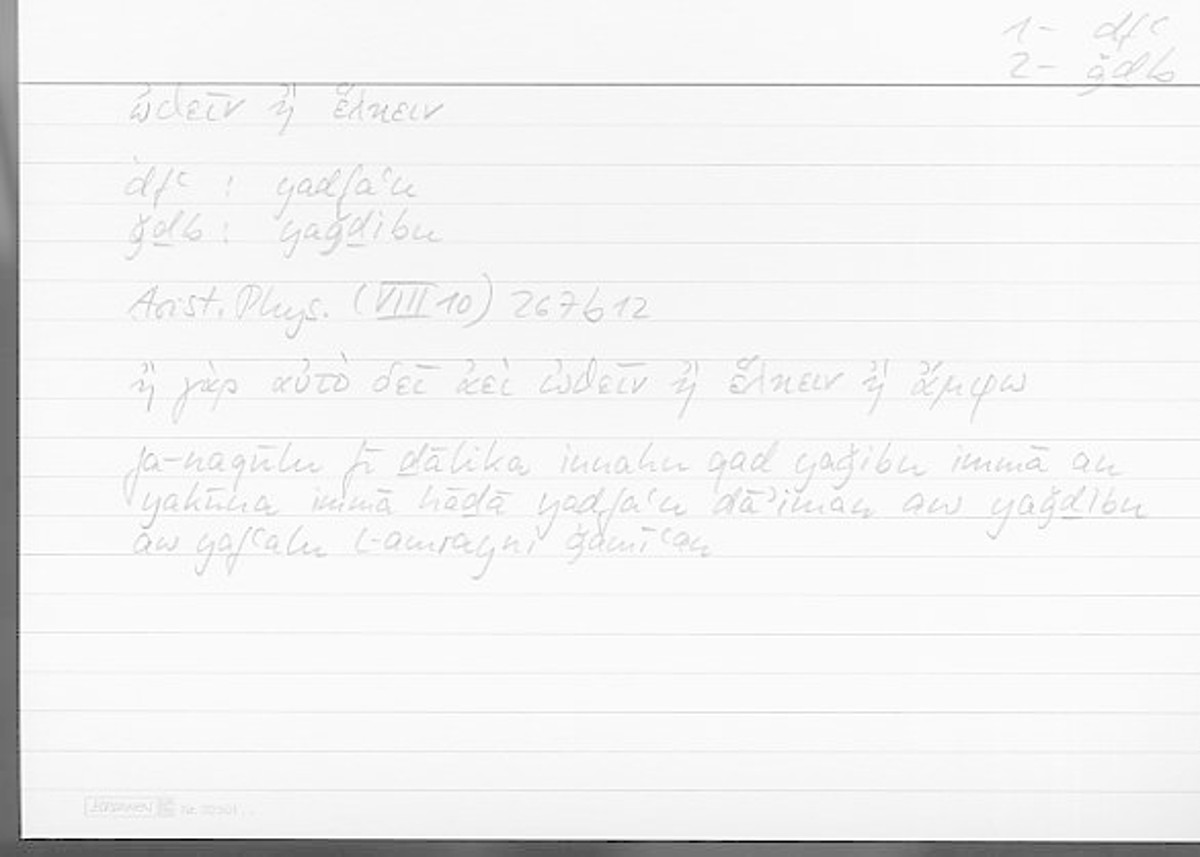 1- dfʿ
2- ǧḏb
ὠθεῖν ἢ ἕλκειν
dfʿ : yadfaʿu
ǧḏb : yaǧḏibu
Arist. Phys. (VIII 10) 267b12
ἢ γὰρ αὐτὸ δεῖ ἀεὶ ὠθεῖν ἢ ἕλκειν ἢ ἄμφω
fa-naqūlu fī ḏālika innahu qad yaǧibu immā an
yakūna immā hāḏā yadfaʿu dāʾiman aw yaǧḏibu
aw yafʿalu l-amrayni ǧamīʿan
BRUNNEN Nr.